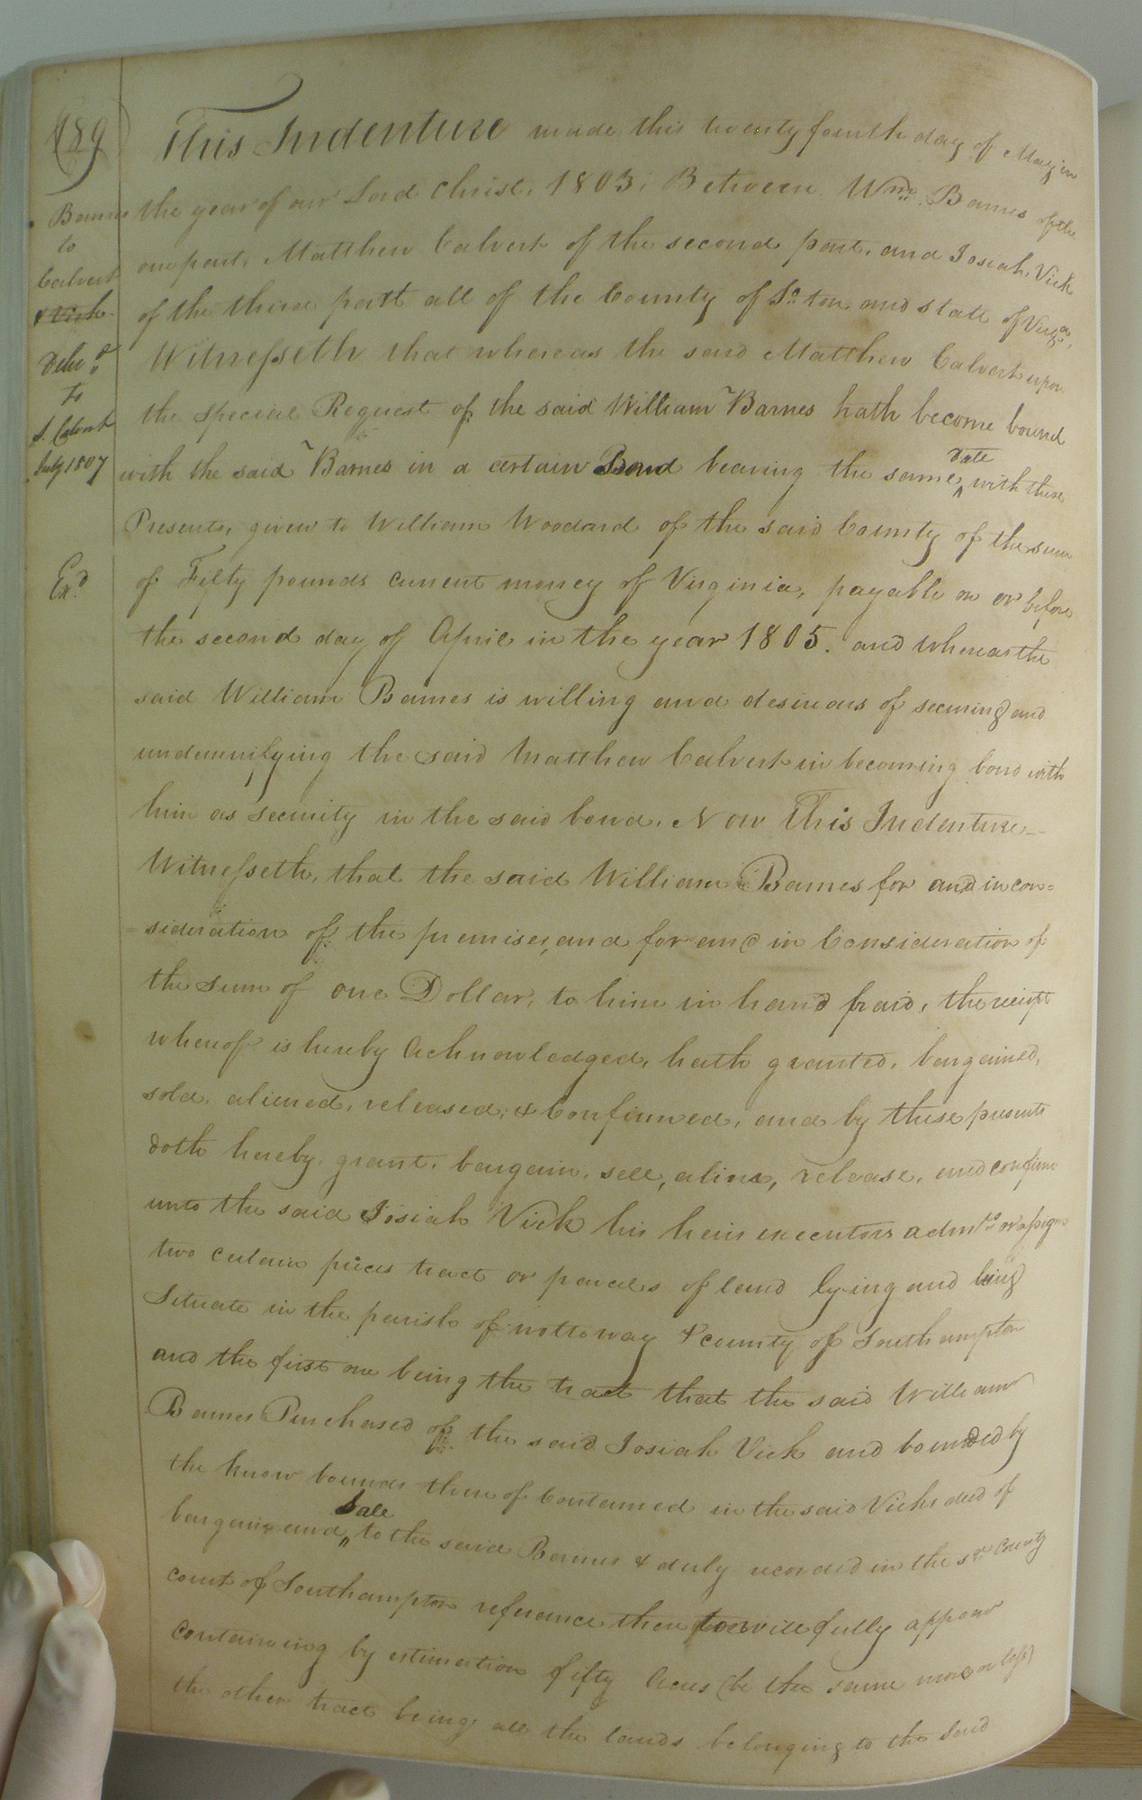 189
Barnes
to
Calvert
& Vick
Deliv.d
To
S. Calvert
July 1807
Ex.d
This Indenture made this twenty fourth day of May in
the year of our Lord Christ, 1803, Between Wm. Barnes of the
one part, Matthew Calvert of the second part, and Josiah Vick
of the third part all of the County of So. ton and state of Virga.
Witnesseth that whereas the said Matthew Calvert upon
the special Request of the said William Barnes hath become bound
with the said Barnes in a certain Bond bearing the same date with these
Presents, given to William Woodard of the said County of the sum
of Fifty pounds current money of Virginia, payable on or before
the second day of April in the year 1805. and whereas the
said William Barnes is willing and desirous of securing and
undemnifying the said Matthew Calvert in becoming bond with
him as security in the said bond. Now This Indenture
Witnesseth, that the said William Barnes for and in con=
sideration of the premises, and for and in Consideration of
the sum of one Dollar, to him in hand paid, the receipt
whereof is hereby acknowledged, hath granted, bargained,
sold, aliened, released, & Confirmed, and by these presents
doth hereby grant, bargain, sell, alien, release, and confirm
unto the said Josiah Vick his heirs executors admtrs or assigns
two certain pieces tract or parcels of land lying and being
Situate in the parish of nottoway & county of Southampton
and the first one being the tract that the said William
Barnes Purchased of the said Josiah Vick and bounded by
the know bounds thereof Contained in the said Vicks deed of
bargain and Sale to the said Barnes & duly recorded in the sd. County
court of Southampton reference thereto will fully appear
containing by estimation fifty Acres (be the same more or less)
the other tract being all the lands belonging to the said